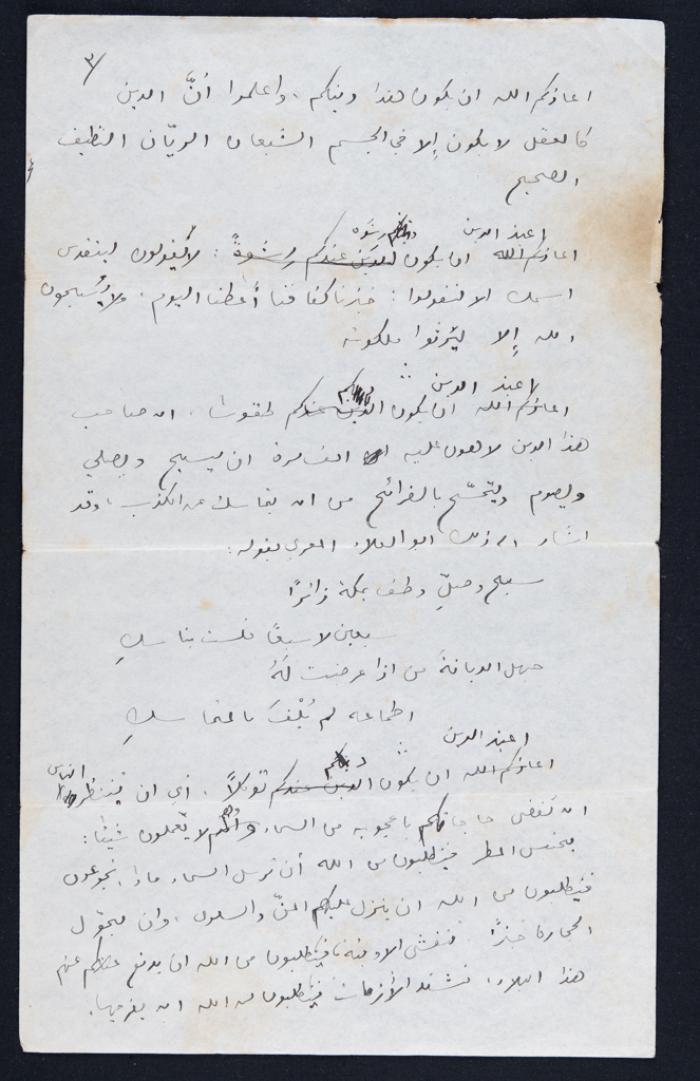 ٣/
اعاذكم الله ان يكون هذا دينكم. واعلموا أنَّ الدين
كالعقل لا يكون إلا في الجسم الشبعان الريّان النظيف
الصحيح
اعيذ الدين
دينكم رشوه
اعاذكم الله ان يكون الدين عندكم رشوةً: لا يقولون ليتقدس
اسمك الا ليقولوا: خبزنا كفافنا أعطنا اليوم. ولا يُسبحون
الله إلا ليرثوا ملكوته
اعيذ الدين
دينكم
اعاذكم الله ان يكون الدين عندكم طقوسًا. ان صاحب
هذا الدين لأهون عليه ان يسبح ويصلي
ويصوم ويتمسّح بالضرائح من ان يتماسك عن الكذب. وقد
اشار الى ذلك ابو العلاء المعري بقوله:
سبح وصلِّ وطف بمكة زائرًا
سبعين لا سبعًا فلست بناسكِ
جهل الديانةَ من اذا عرضت لَهُ
اطماعه لم يُلْفَ بالمتماسكِ
اعيذ الدين
دينكم
اعاذكم الله ان يكون الدين عندكم توكلاً. أي ان ينتظر الناس
ان تُقضى حاجاتكم باعجوبه من السماء وهم لا يعملون شيئًا:
يحتبس المطر فيطلبون من الله أن ترسل السماء ماء، يجوعون
فيطلبون من الله ان ينزل عليهم المنّ والسلوى، وان يحوّل
الحجارة خبزًا. تفشى الاوبئة فيطلبون من الله ان يدفع عنهم
هذا البلاء. تشتد الأزمات فيطلبون من الله ان يفرجها.